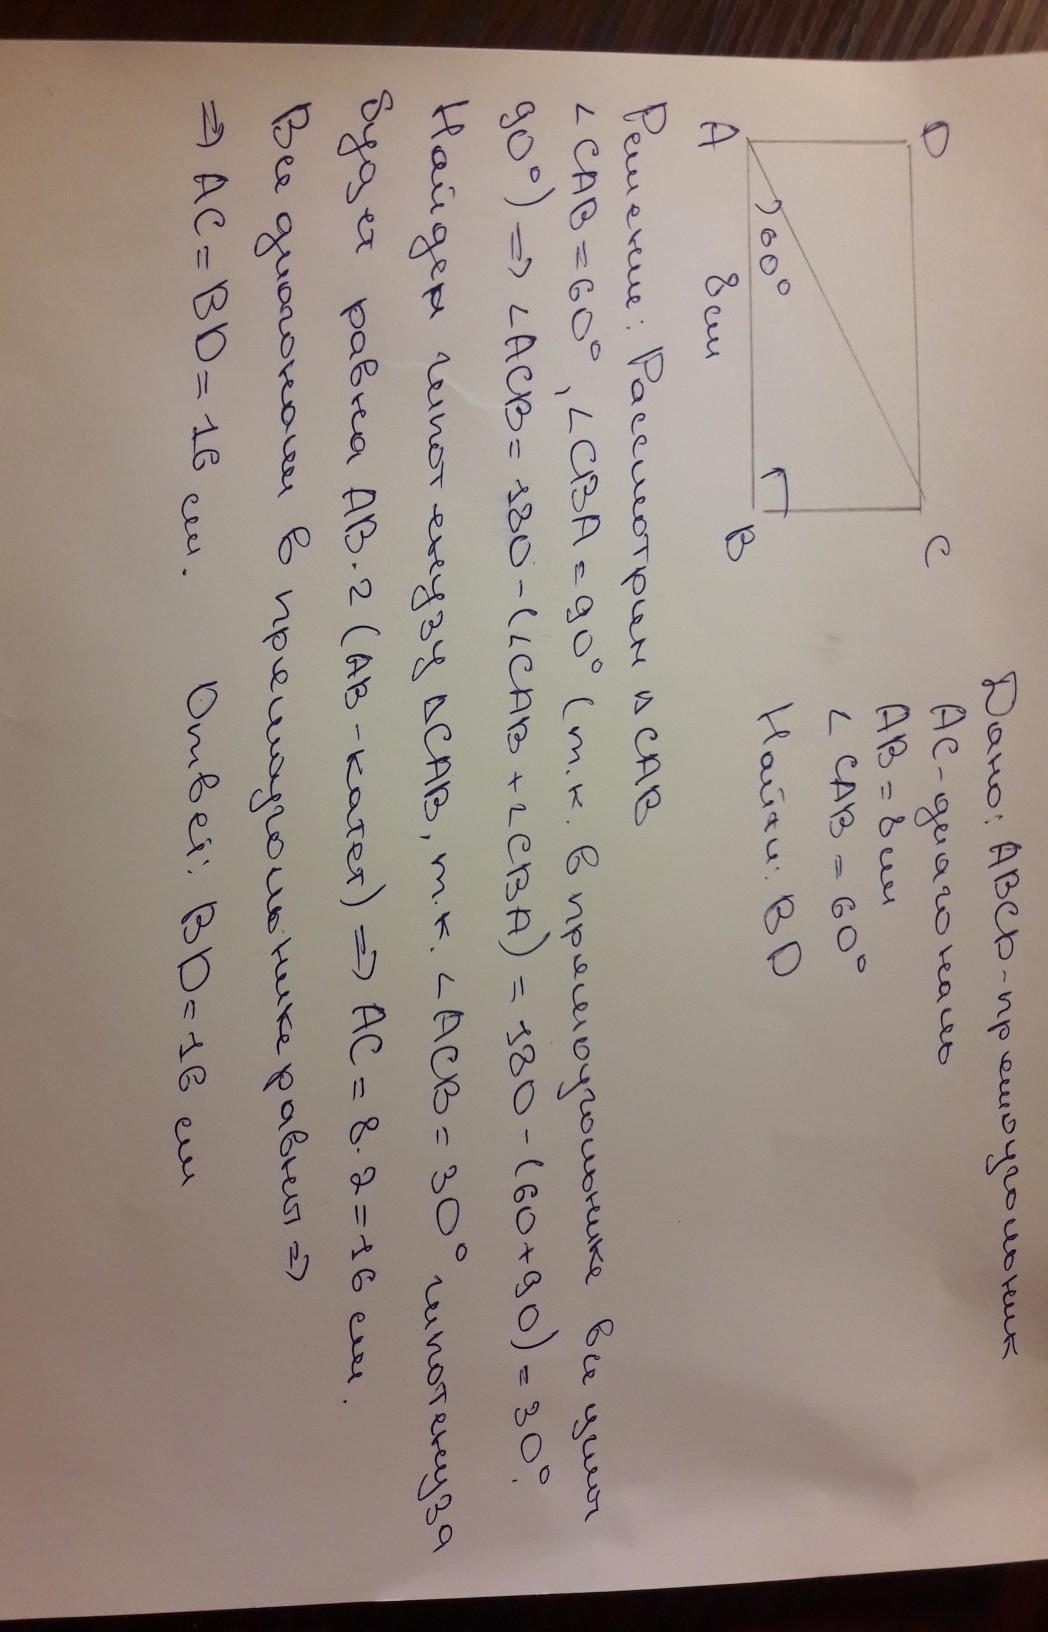 D
C
A
60°
8 см
B
Дано: ABCD-прямоугольник
AC-диагональ
AB = 8 см
∠ CAB = 60°
Найти: BD
Решение: Рассмотрим ΔCAB
∠CAB = 60°, ∠CBA = 90° (т.к. в прямоугольнике все углы
90°) => ∠ACB = 180 - (∠CAB + ∠CBA) = 180 - (60+90) = 30°.
Найдем гипотенузу ΔCAB, т.к. ∠ACB = 30° гипотенуза
будет равна AB · 2 (AB - катет) => AC = 8 · 2 = 16 см.
Все диагонали в прямоугольнике равны =>
=> AC = BD = 16 см. Ответ: BD = 16 см